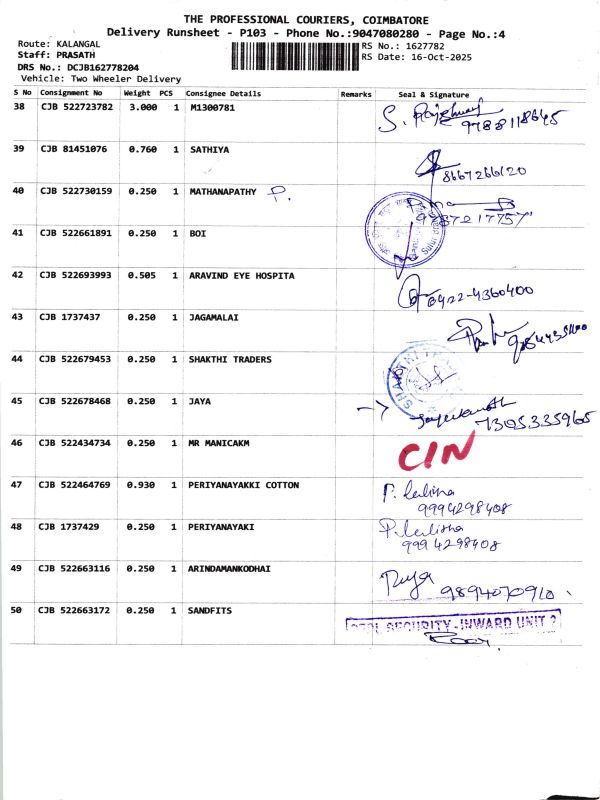 THE PROFESSIONAL COURIERS, COIMBATORE
Delivery Runsheet - P103 - Phone No.:9047080280 - Page No.:4
Route: KALANGAL RS No.: 1627782
Staff: PRASATH RS Date: 16-Oct-2025
DRS No.: DCJB162778204
Vehicle: Two Wheeler Delivery
S No Consignment No Weight PCS Consignee Details Remarks Seal & Signature
38 CJB 522723782 3.000 1 M1300781
9788118645
39 CJB 81451076 0.760 1 SATHIYA
8667266120
40 CJB 522730159 0.250 1 MATHANAPATHY P.
9787217757
41 CJB 522661891 0.250 1 BOI
42 CJB 522693993 0.505 1 ARAVIND EYE HOSPITA
0422-4360400
43 CJB 1737437 0.250 1 JAGAMALAI
44 CJB 522679453 0.250 1 SHAKTHI TRADERS
45 CJB 522678468 0.250 1 JAYA
7305335965
46 CJB 522434734 0.250 1 MR MANICAKM C/N
47 CJB 522464769 0.930 1 PERIYANAYAKKI COTTON P. Lalitha
9994298408
48 CJB 1737429 0.250 1 PERIYANAYAKI P. Lalitha
9994298408
49 CJB 522663116 0.250 1 ARINDAMANKODHAI
9894070910
50 CJB 522663172 0.250 1 SANDFITS
SECURITY - INWARD UNIT 2